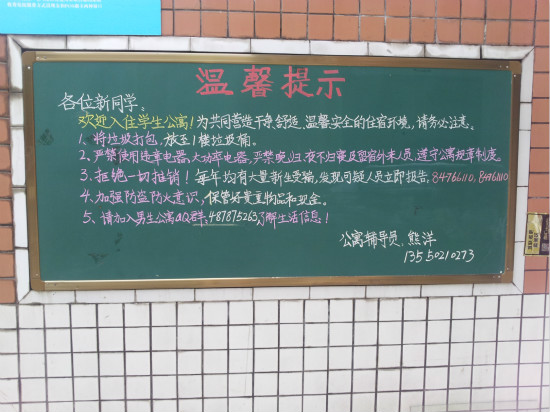 温馨提示
各位新同学。
欢迎入住学生公寓!为共同营造干净、舒适、温馨、安全的住宿环境,请务必注意。
1、将垃圾打包,放至1楼垃圾桶。
2、严禁使用违章电器、大功率电器,严禁晚归、夜不归寝及留宿外来人员,遵守公寓规章制度。
3、拒绝一切推销!每年均有大量新生受骗,发现可疑人员立即报告,84766110,
4、加强防盗防火意识,保管好贵重物品和现金。
5、请加入男生公寓QQ群,487875263,了解生活信息!
公寓辅导员,熊洋
13550210273